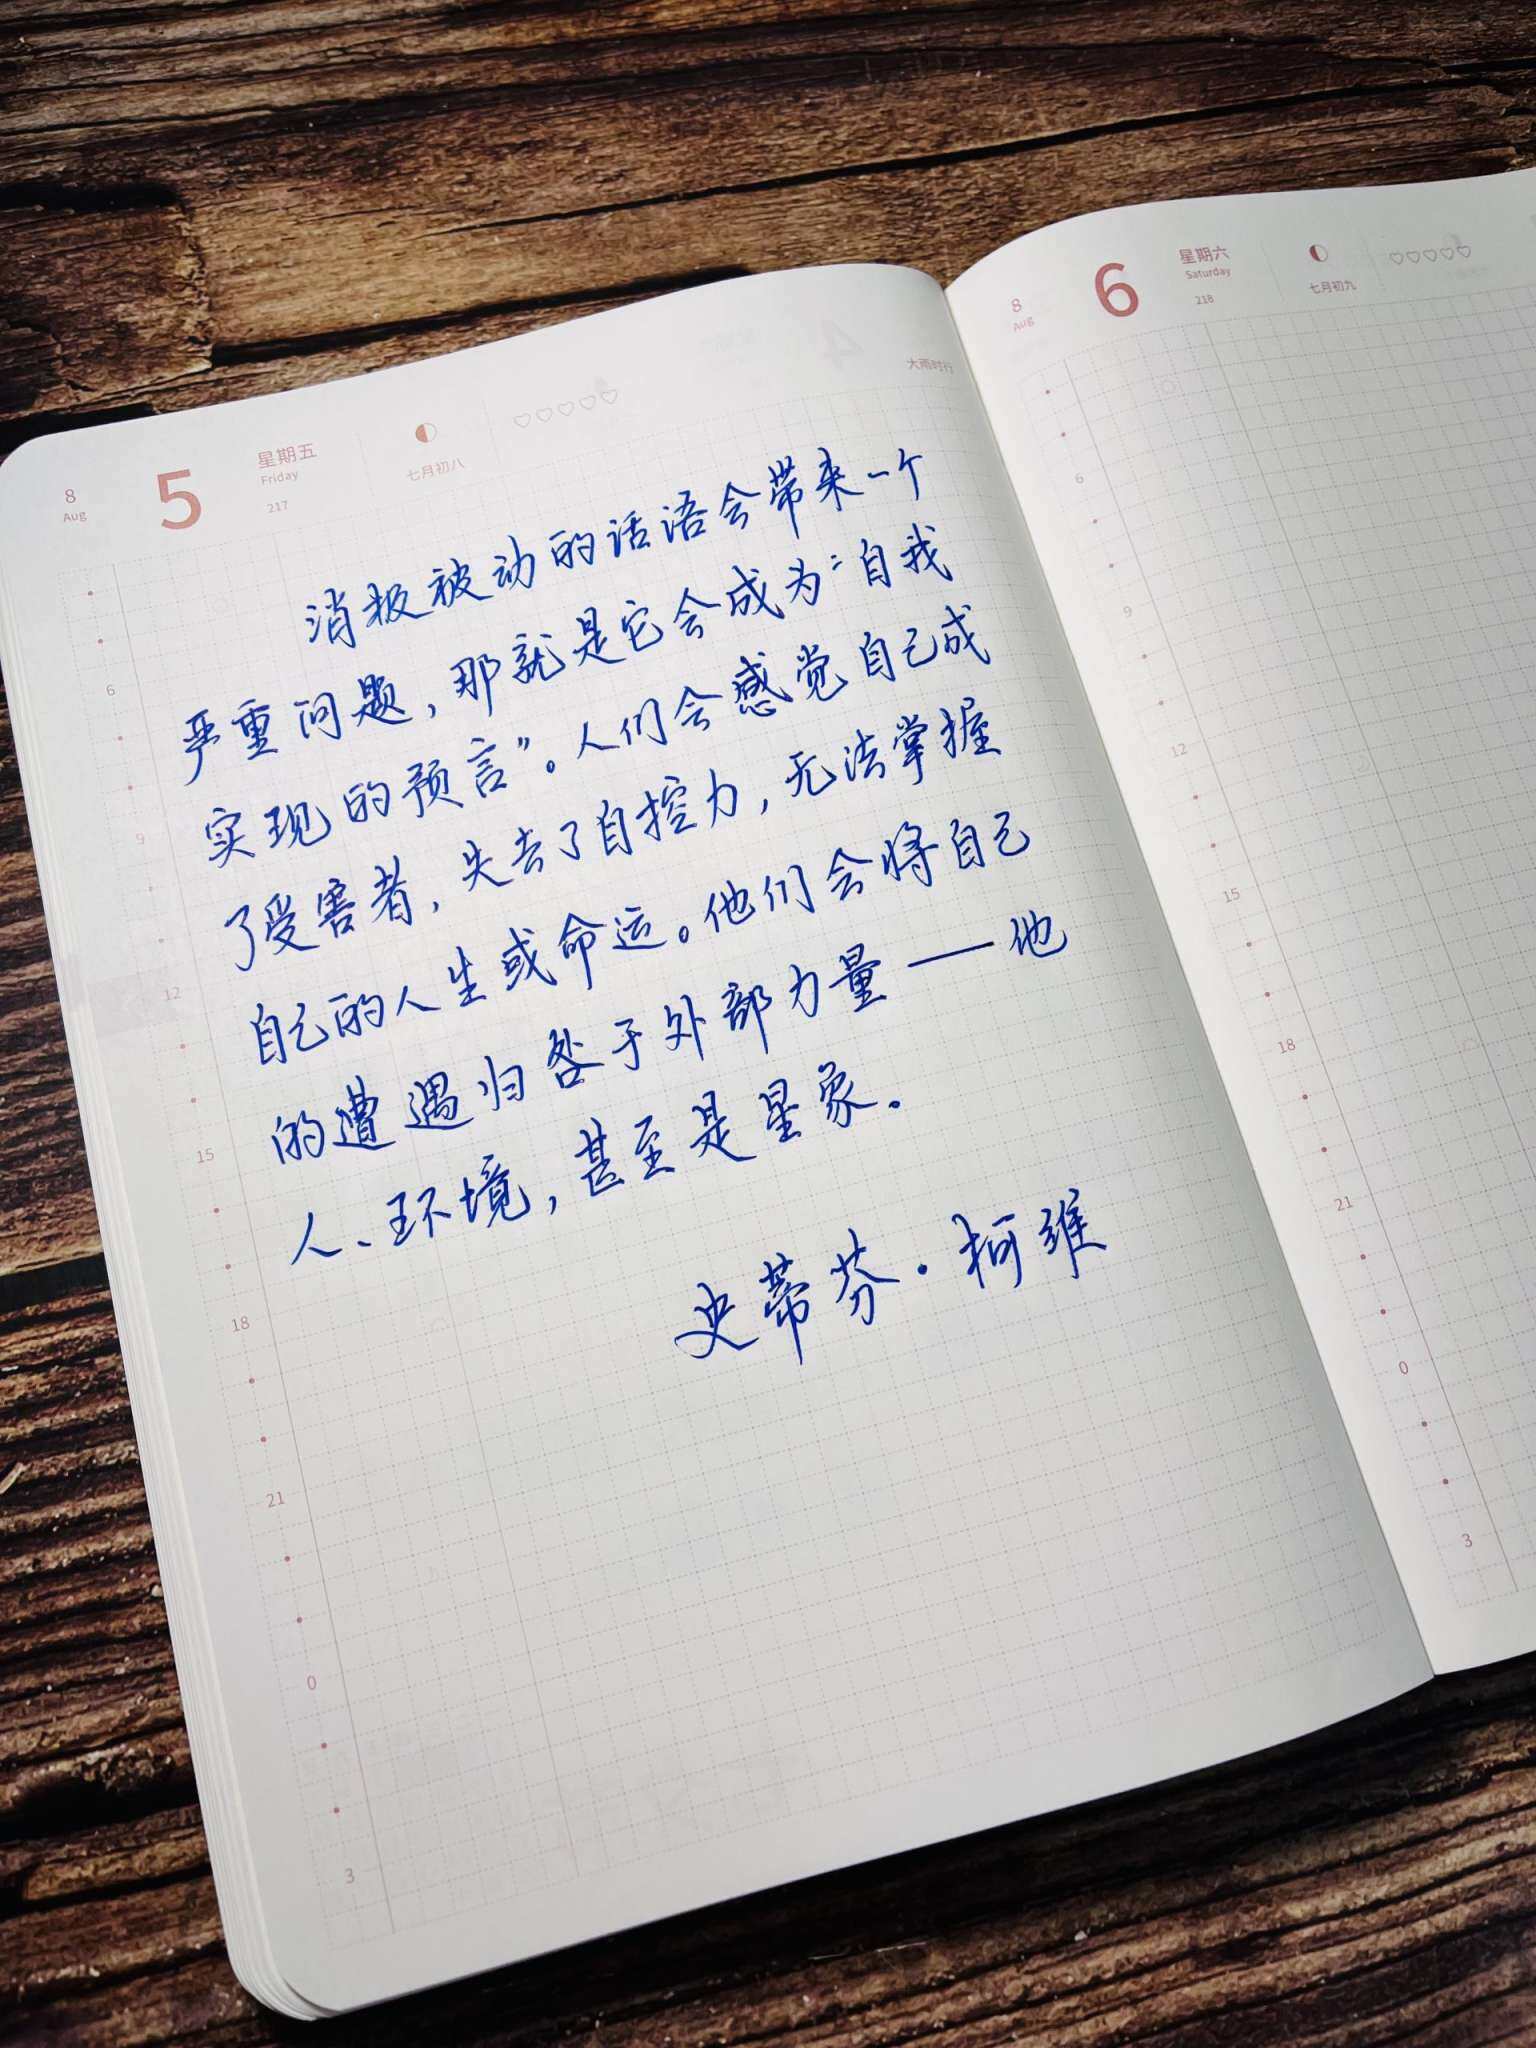 8
Aug
5
星期五
Friday
217
七月初八
大雨时行
消极被动的话语会带来一个
严重问题，那就是它会成为“自我
实现的预言”。人们会感觉自己成
了受害者，失去了自控力，无法掌握
自己的人生或命运。他们会将自己
的遭遇归咎于外部力量——他
人、环境，甚至是星象。
史蒂芬·柯维
6
9
12
15
18
21
0
3
8
Aug
6
星期六
Saturday
218
七月初九
6
9
12
15
18
21
0
3